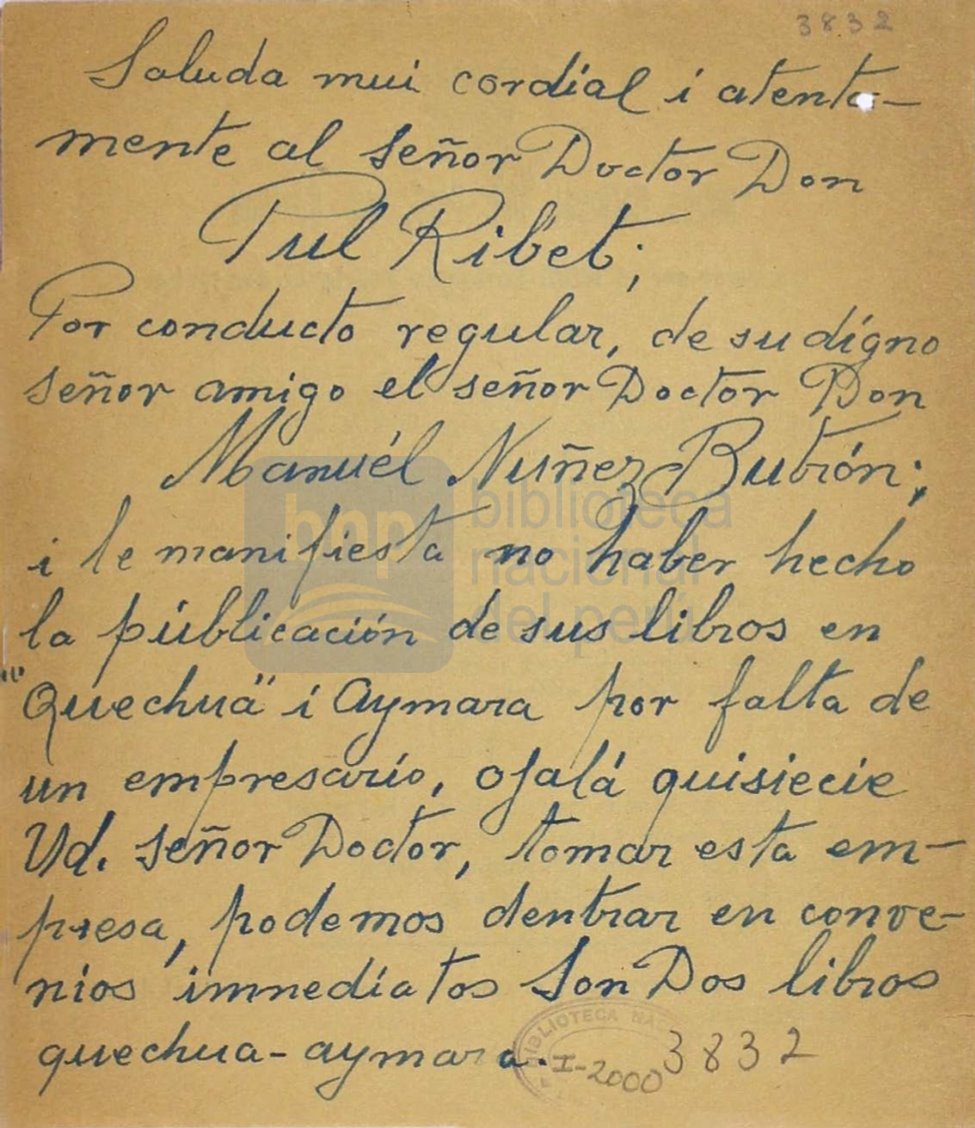 3832
Saluda mui cordial i atenta-
mente al señor Doctor Don
Pul Ribet;
Por conducto regular, de su dígno
señor amigo el señor Doctor Don
Manuél Nuñez Butrón;
i le manifiesta no haber hecho
la públicación de sus libros en
"Quechua" i Aymara por falta de
un empresario, ojalá quisiecie
Ud. señor Doctor, tomar esta em-
presa, podemos dentrar en conve-
nios imnedíatos Son Dos libros
quechua-aymara.
BIBLIOTECA NA
I-2000
3832
bnp
biblioteca
nacional
del perú